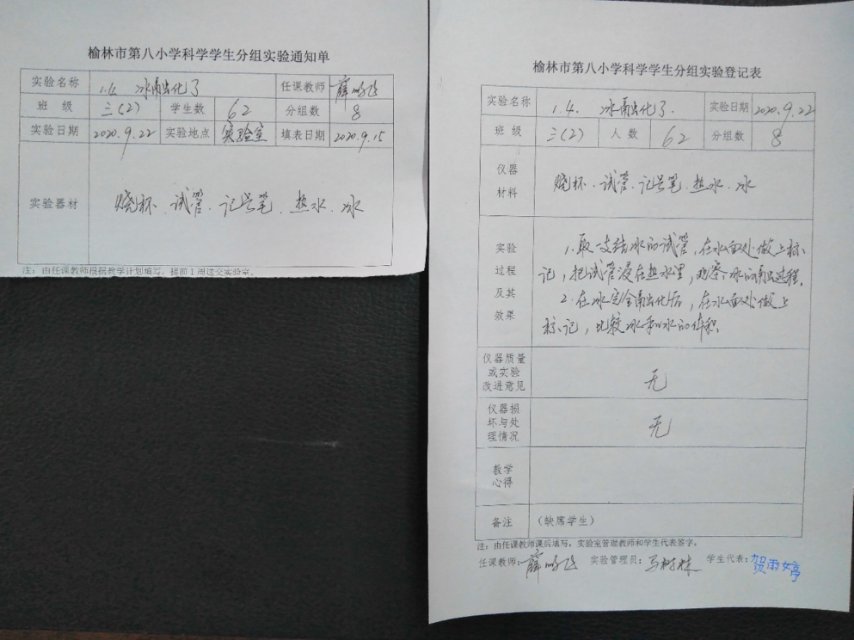 榆林市第八小学科学学生分组实验通知单
实验名称 1.4. 冰融化了 任课教师 薛
班 级 三(2) 学生数 62 分组数 8
实验日期 2020.9.22 实验地点 实验室 填表日期 2020.9.15
实验器材 烧杯、试管、记号笔、热水、冰
注:由任课教师根据教学计划填写,提前1周送交实验室。
榆林市第八小学科学学生分组实验登记表
实验名称 1.4. 冰融化了. 实验日期 2020.9.22
班 级 三(2) 人 数 62 分组数 8
仪器
材料
烧杯、试管、记号笔、热水、冰
实验
过程
及其
效果
1.取一支结冰的试管,在水面处做上标
记,把试管浸在热水里,观察冰的融化过程.
2.在冰完全融化后,在水面处做上
标记,比较冰和水的体积.
仪器质量
或实验
改进意见
无
仪器损
坏与处
理情况
无
教学
心得
备注 (缺席学生)
注:由任课教师课后填写,实验室管理教师和学生代表签字。
任课教师:薛 实验管理员:马树林 学生代表:贺雨婷